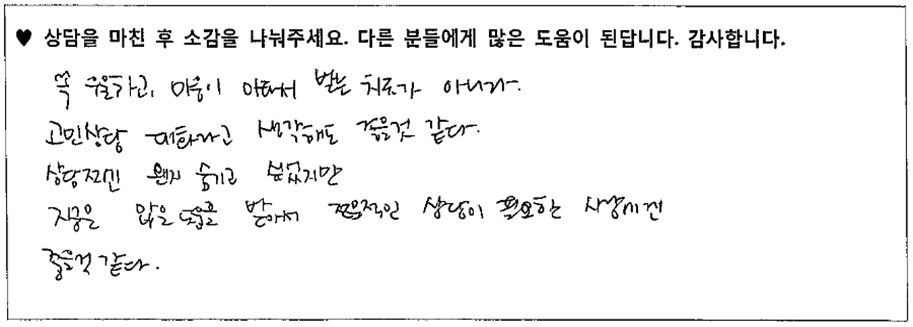 ♥ 상담을 마친 후 소감을 나눠주세요. 다른 분들에게 많은 도움이 된답니다. 감사합니다.
꼭 우울하고, 마음이 아파서 받는 치료가 아니라.
고민상담 대화라고 생각해도 좋을것 같다.
상담전엔 왠지 숨기고 싶었지만
지금은 많은 도움을 받아서 전문적인 상담이 필요하는 사람에겐
좋을것 같다.